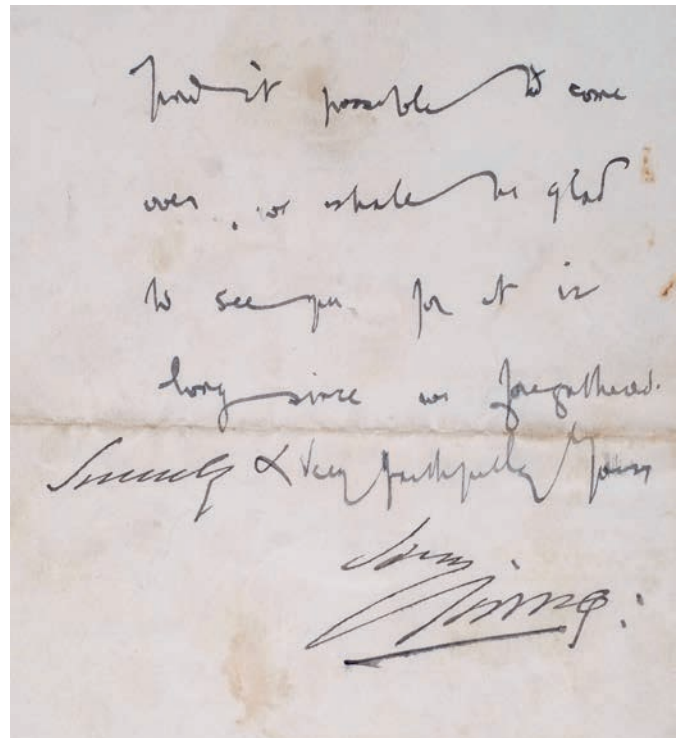 find it possible to come
over, we shall be glad
to see you for it is
long since we foregathered.
Sincerely & Very faithfully Yours
Irving